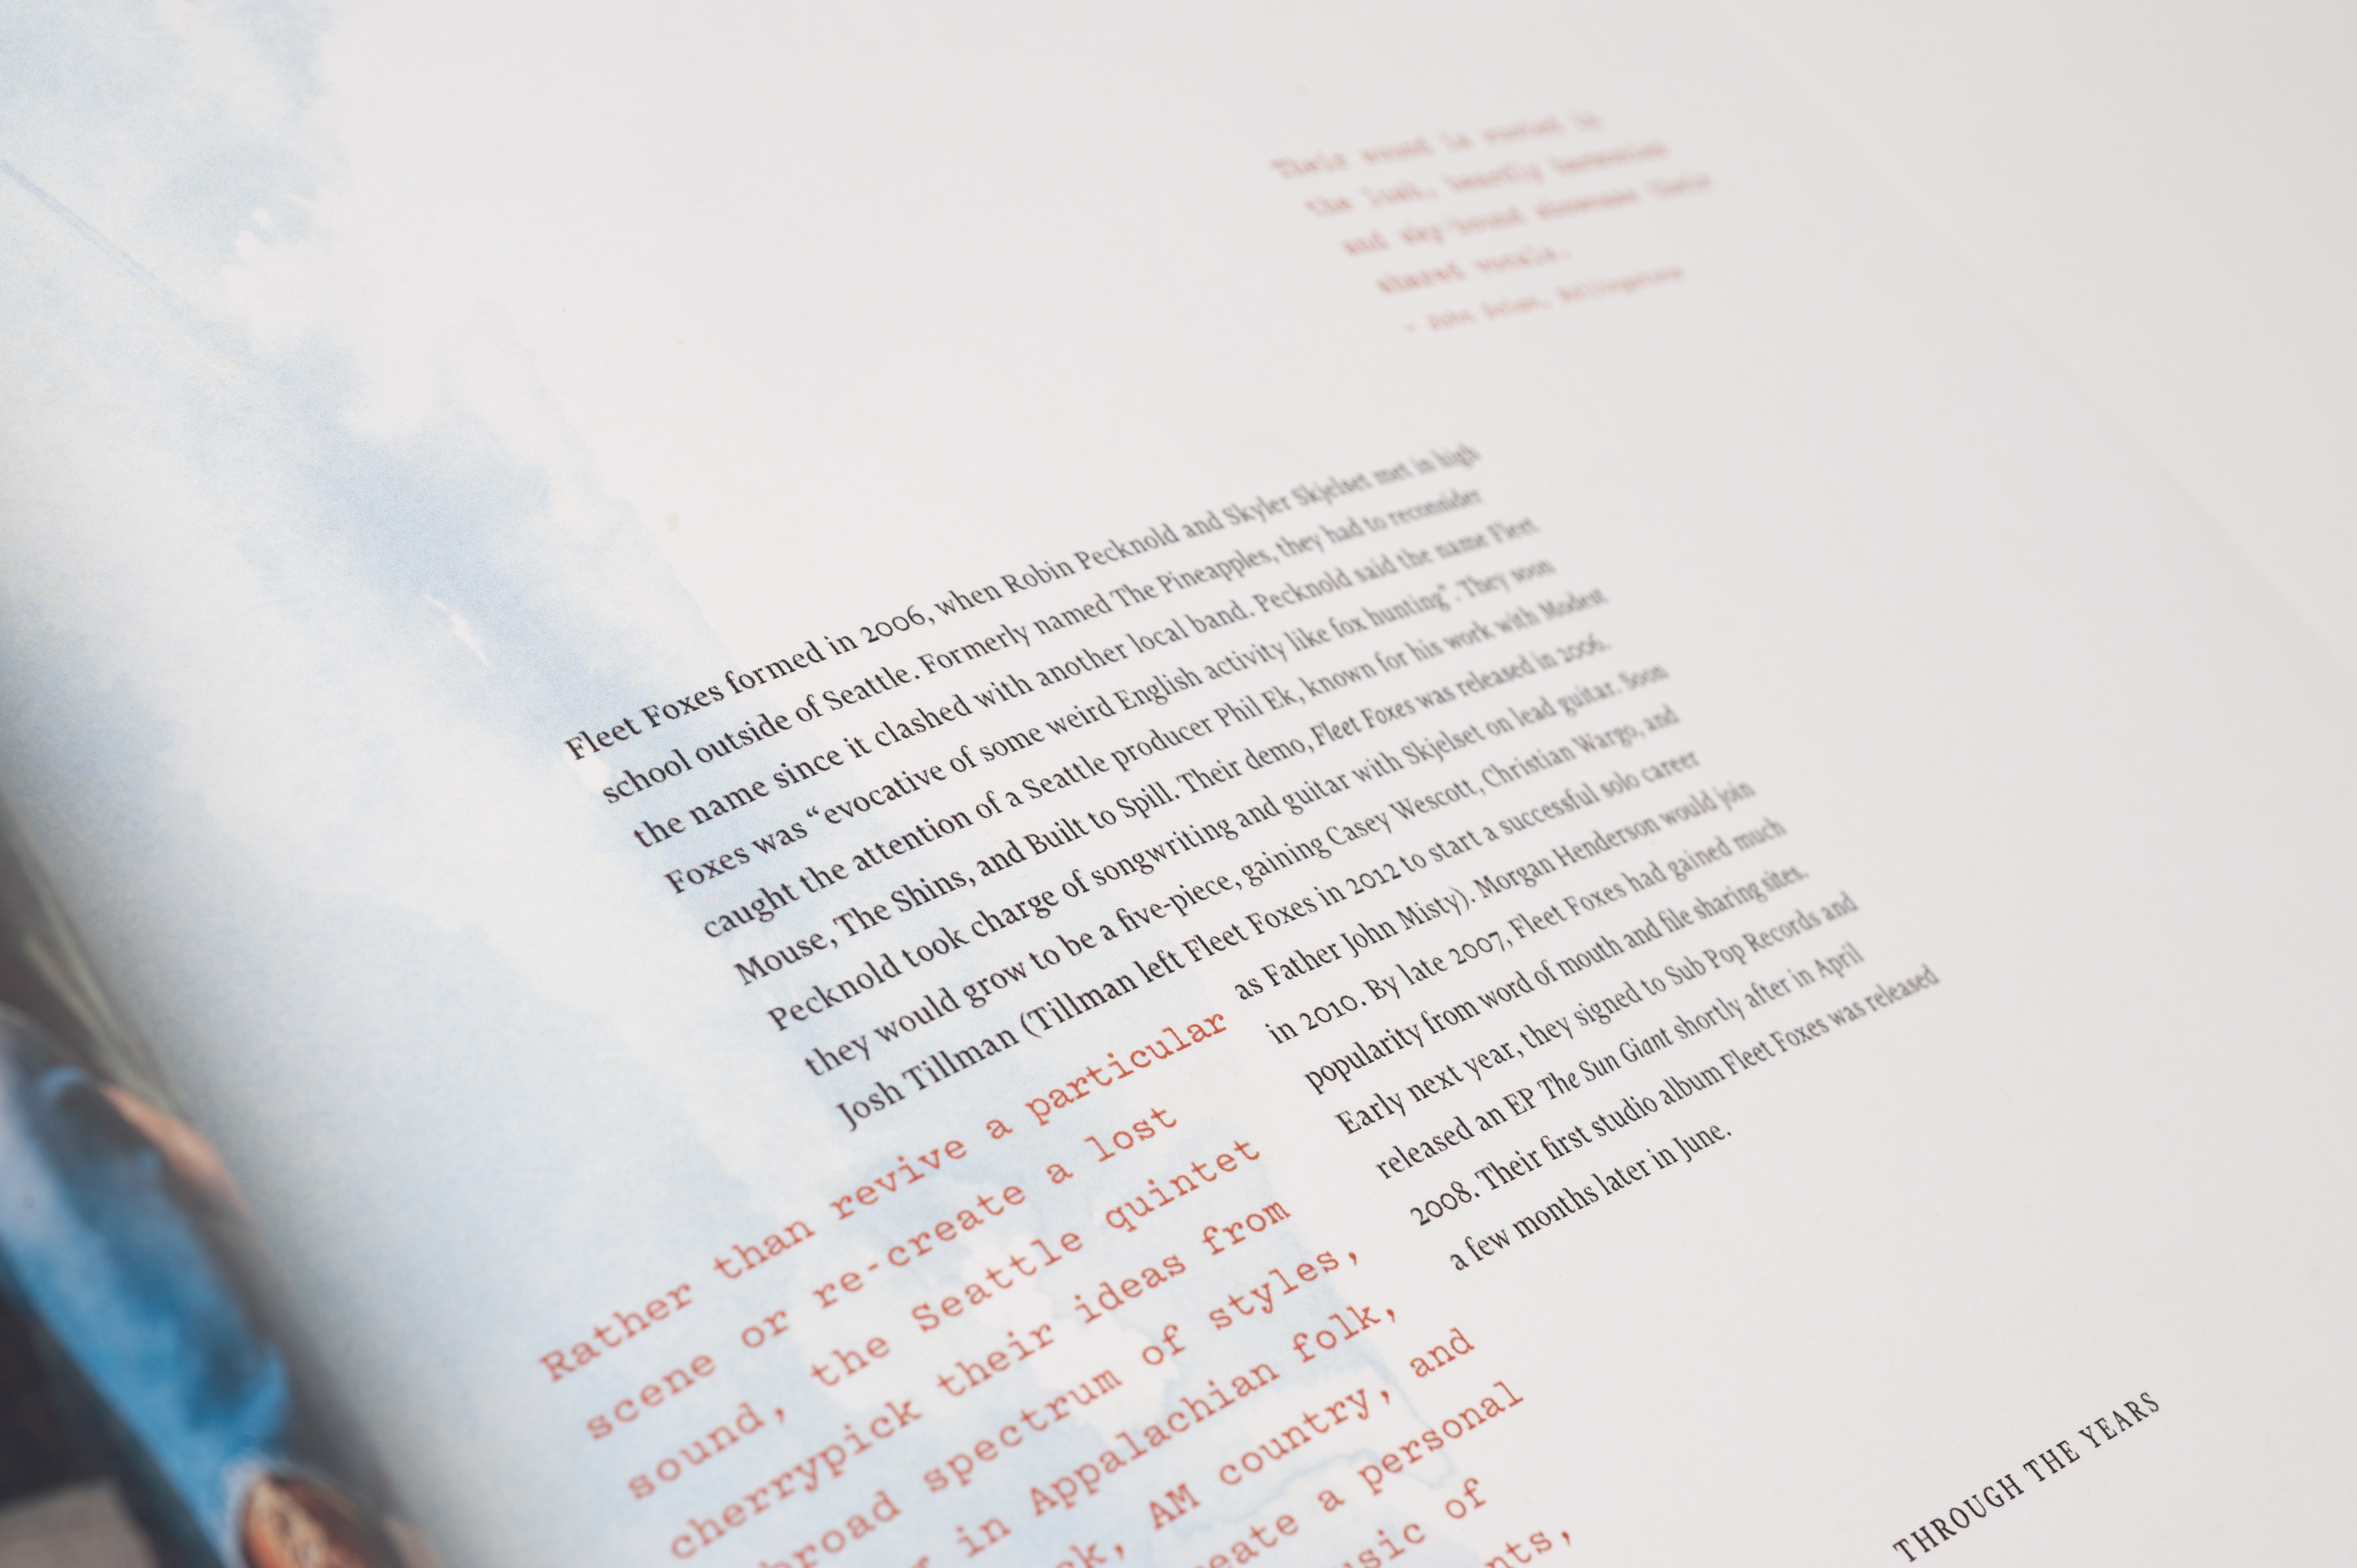 Their sound is rooted in
the lush, beastly harmonies
and sky-bound showcase their
shared vocals.
- John
Fleet Foxes formed in 2006, when Robin Pecknold and Skyler Skjelset met in high
school outside of Seattle. Formerly named The Pineapples, they had to reconsider
the name since it clashed with another local band. Pecknold said the name Fleet
Foxes was “evocative of some weird English activity like fox hunting”. They soon
caught the attention of a Seattle producer Phil Ek, known for his work with Modest
Mouse, The Shins, and Built to Spill. Their demo, Fleet Foxes was released in 2006.
Pecknold took charge of songwriting and guitar with Skjelset on lead guitar. Soon
they would grow to be a five-piece, gaining Casey Wescott, Christian Wargo, and
Josh Tillman (Tillman left Fleet Foxes in 2012 to start a successful solo career
as Father John Misty). Morgan Henderson would join
in 2010. By late 2007, Fleet Foxes had gained much
popularity from word of mouth and file sharing sites.
Early next year, they signed to Sub Pop Records and
released an EP The Sun Giant shortly after in April
2008. Their first studio album Fleet Foxes was released
a few months later in June.
Rather than revive a particular
scene or re-create a lost
sound, the Seattle quintet
cherrypick their ideas from
broad spectrum of styles,
in Appalachian folk,
AM country, and
a personal
of
THROUGH THE YEARS